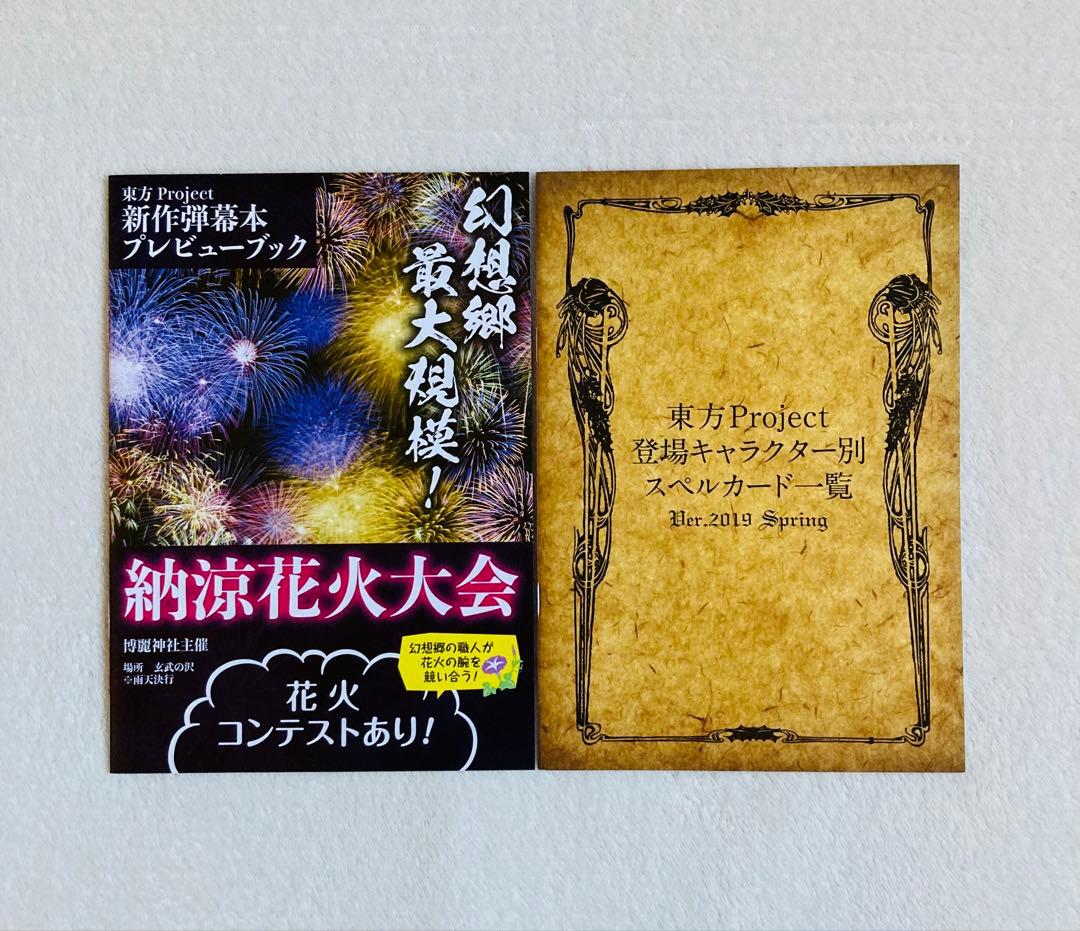 東方 Project
新作弾幕本
プレビューブック
幻想郷
最大規模！
納涼花火大会
博麗神社主催
場所　玄武の沢
※雨天決行
幻想郷の職人が
花火の腕を
競い合う！
花火
コンテストあり！
東方Project
登場キャラクター別
スペルカード一覧
Ver.2019 Spring